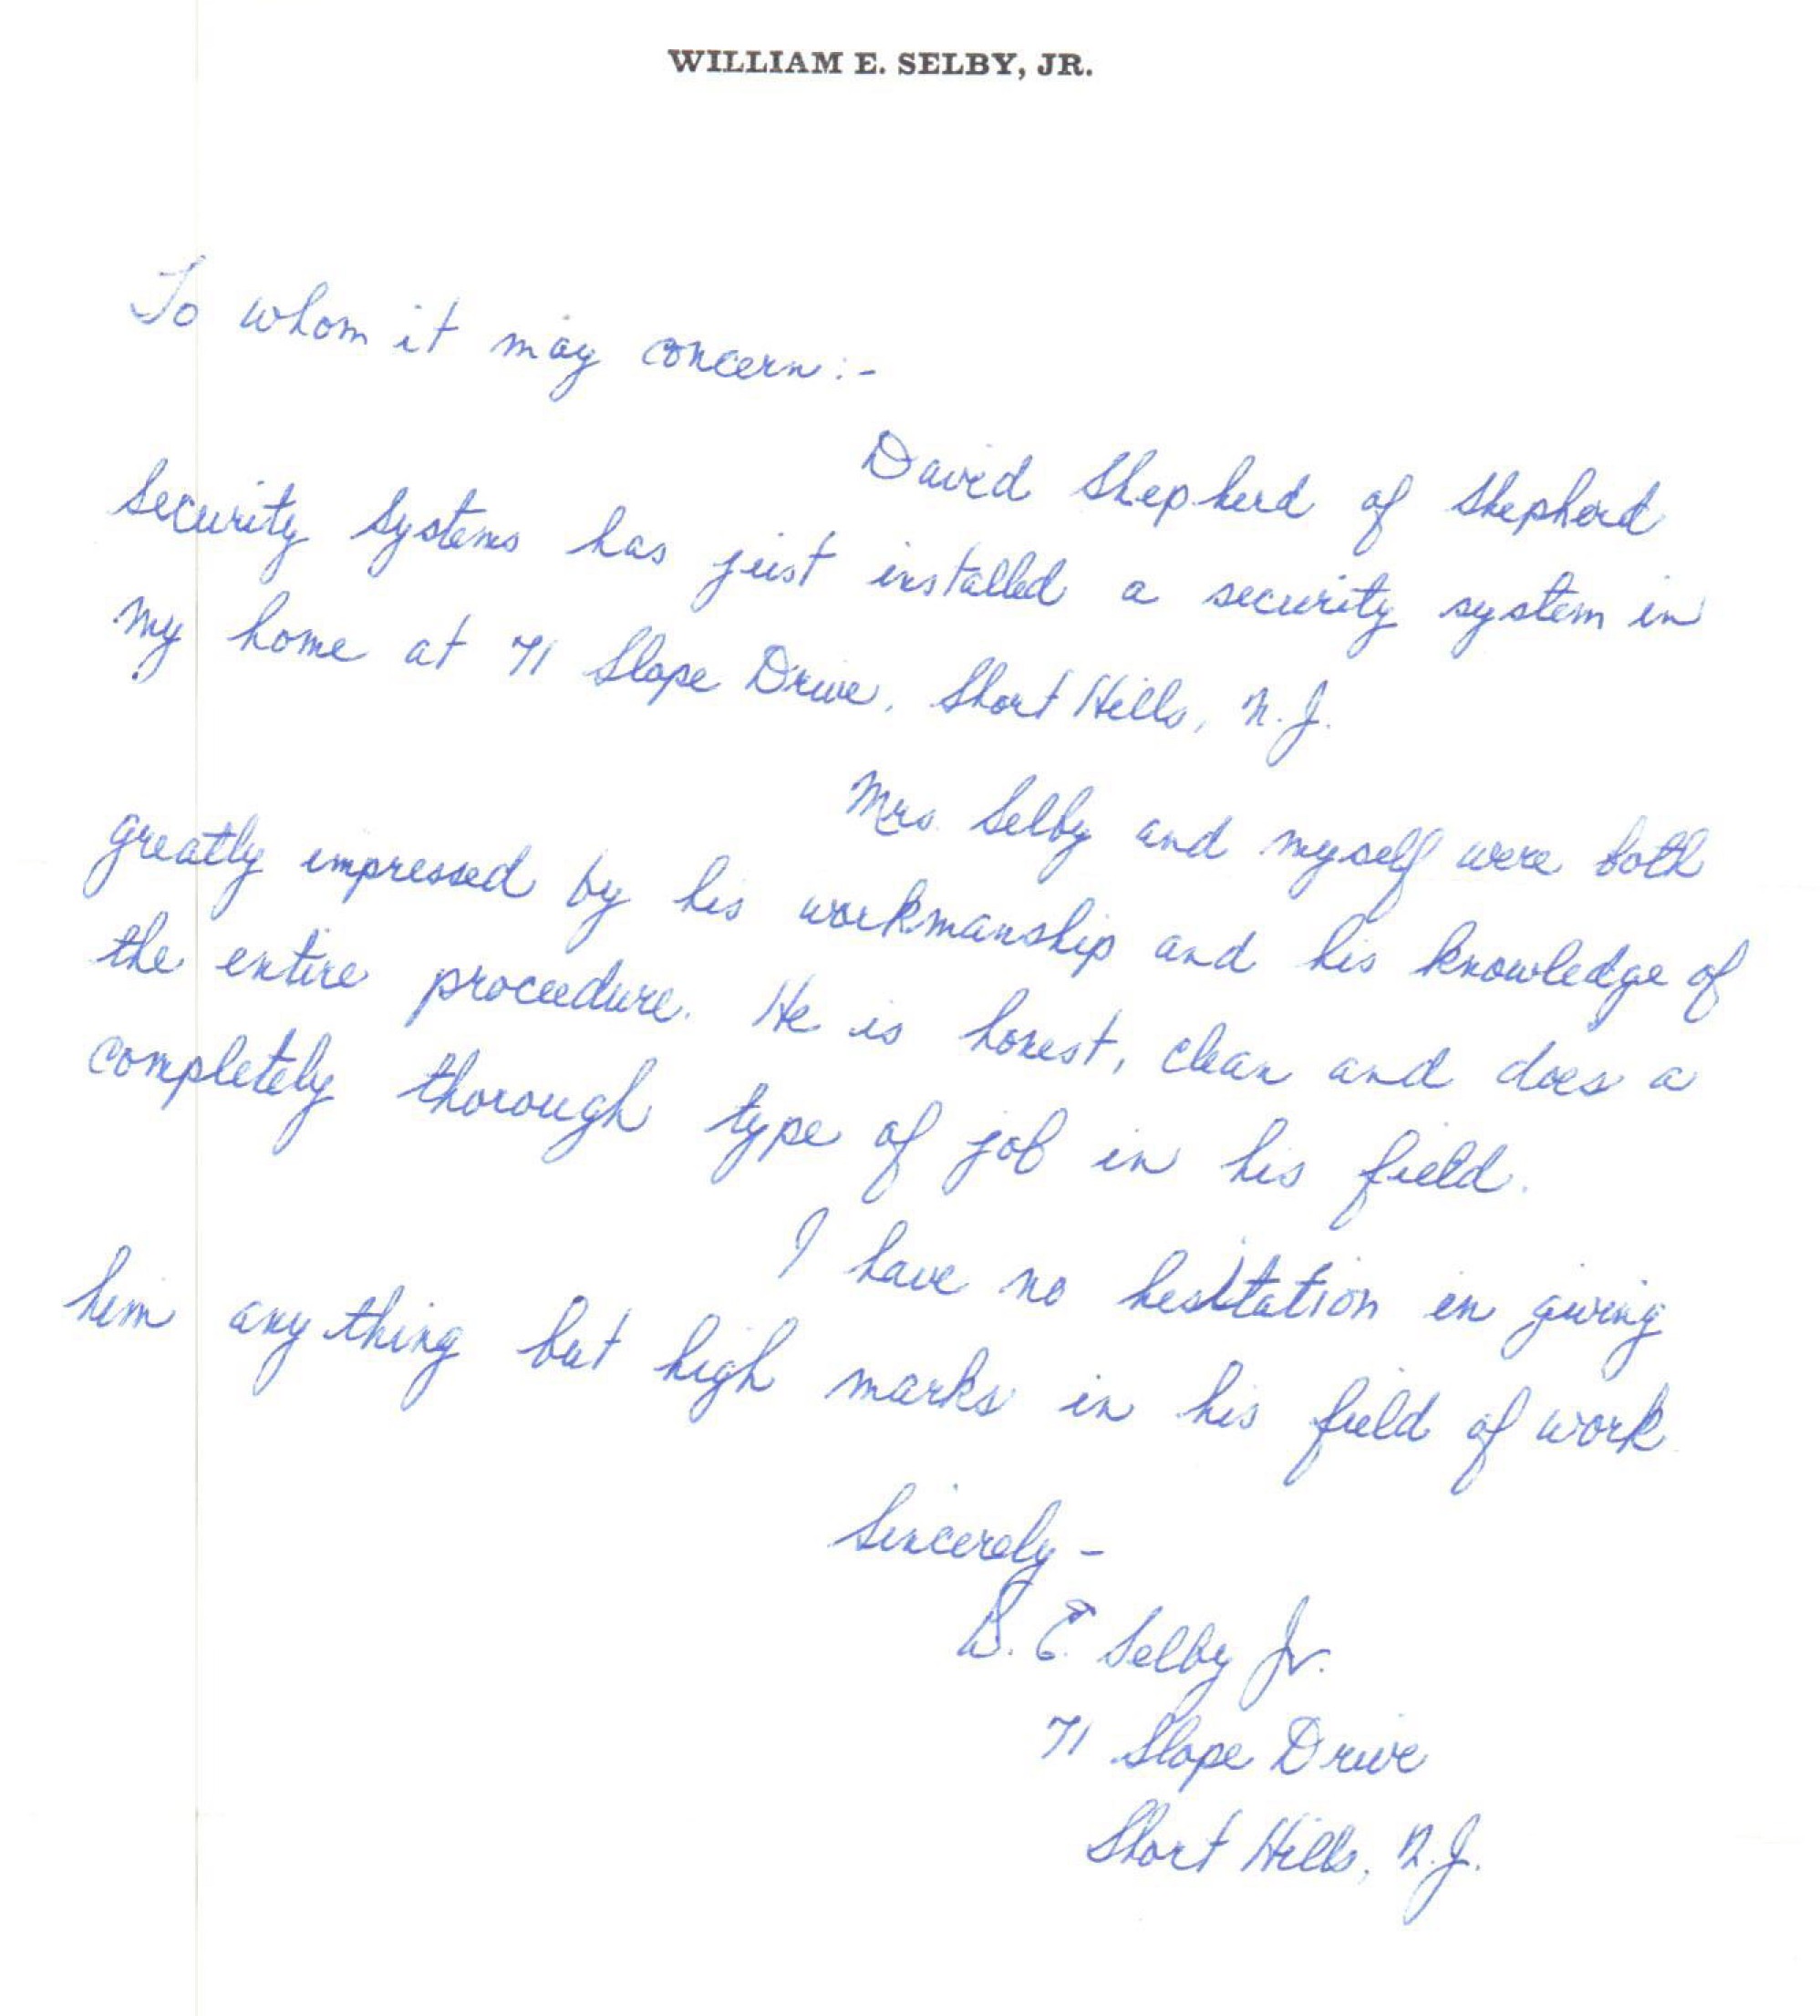 WILLIAM E. SELBY, JR.
To whom it may concern:-
David Shepherd of Shepherd
Security Systems has just installed a security system in
my home at 71 Slope Drive, Short Hills, N.J.
Mrs. Selby and myself were both
greatly impressed by his workmanship and his knowledge of
the entire proceedure. He is honest, clean and does a
completely thorough type of job in his field.
I have no hesitation in giving
him anything but high marks in his field of work
Sincerely -
E. Selby Jr.
71 Slope Drive
Short Hills, N.J.